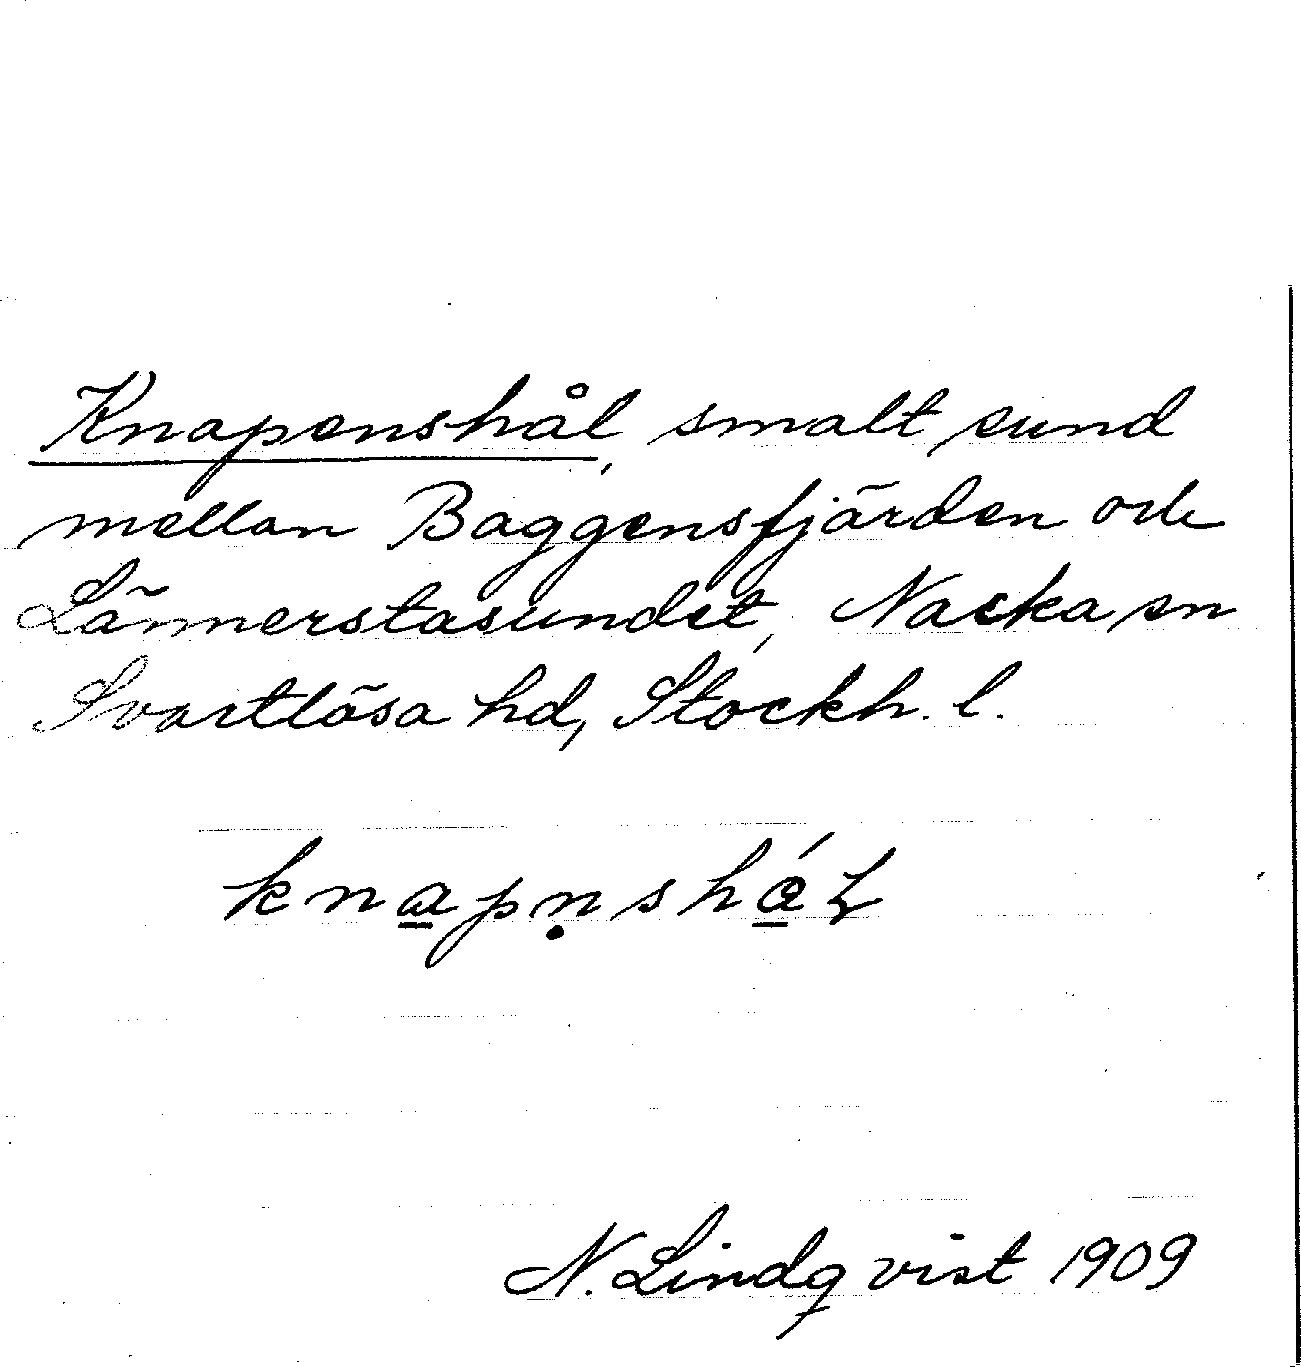 Knapenshål, smalt sund
mellan Baggensfjärden och
Lännerstasundet, Nacka sn
Svartlösa hd, Stockh. l.
knapnshål
N. Lindqvist 1909